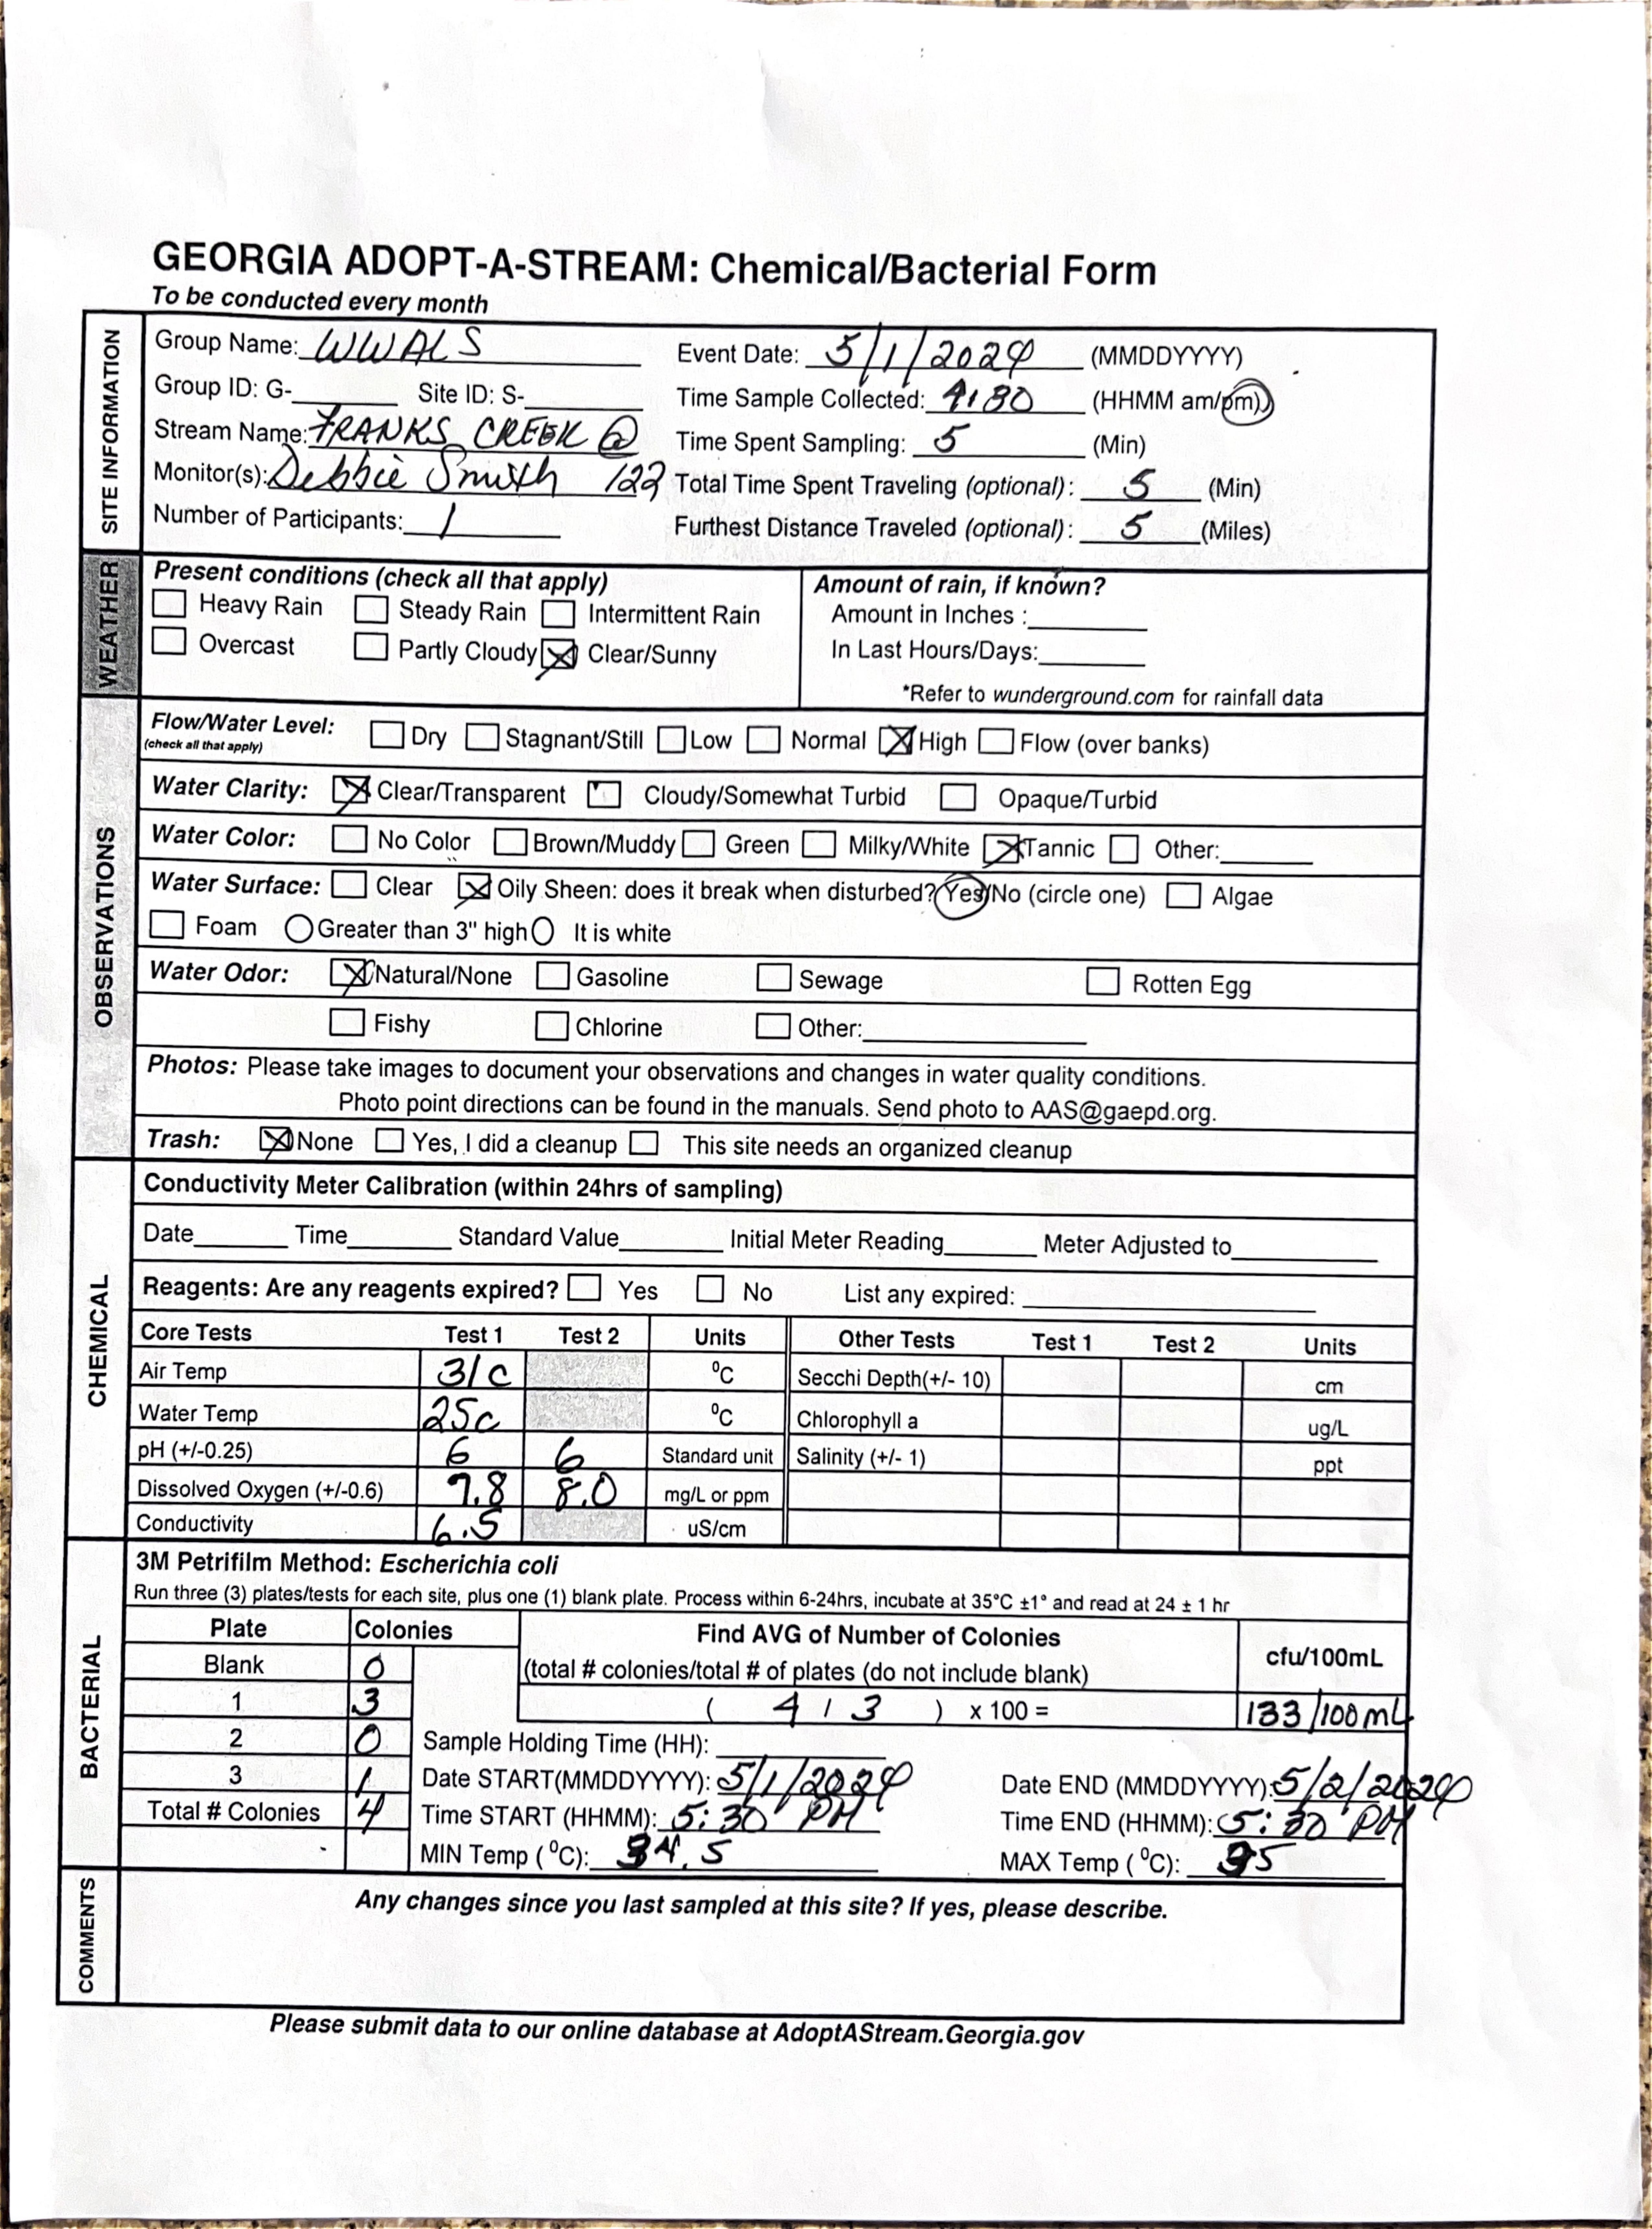 GEORGIA ADOPT-A-STREAM: Chemical/Bacterial Form
To be conducted every month
SITE INFORMATION
Group Name: WWALS Event Date: 5/1/2024 (MMDDYYYY)
Group ID: G-______ Site ID: S-______ Time Sample Collected: 4:30 (HHMM am/pm)
Stream Name: FRANKS CREEK @ Time Spent Sampling: 5 (Min)
Monitor(s): Debbie Smith 122 Total Time Spent Traveling (optional): 5 (Min)
Number of Participants: 1 Furthest Distance Traveled (optional): 5 (Miles)
WEATHER
Present conditions (check all that apply) Amount of rain, if known?
☐ Heavy Rain ☐ Steady Rain ☐ Intermittent Rain Amount in Inches :______
☐ Overcast ☐ Partly Cloudy ☒ Clear/Sunny In Last Hours/Days:______
*Refer to wunderground.com for rainfall data
OBSERVATIONS
Flow/Water Level: ☐ Dry ☐ Stagnant/Still ☐ Low ☐ Normal ☒ High ☐ Flow (over banks)
(check all that apply)
Water Clarity: ☒ Clear/Transparent ☐ Cloudy/Somewhat Turbid ☐ Opaque/Turbid
Water Color: ☐ No Color ☐ Brown/Muddy ☐ Green ☐ Milky/White ☒ Tannic ☐ Other:______
Water Surface: ☐ Clear ☒ Oily Sheen: does it break when disturbed? Yes/No (circle one) ☐ Algae
☐ Foam ○ Greater than 3" high ○ It is white
Water Odor: ☒ Natural/None ☐ Gasoline ☐ Sewage ☐ Rotten Egg
☐ Fishy ☐ Chlorine ☐ Other:______
Photos: Please take images to document your observations and changes in water quality conditions.
Photo point directions can be found in the manuals. Send photo to AAS@gaepd.org.
Trash: ☒ None ☐ Yes, I did a cleanup ☐ This site needs an organized cleanup
CHEMICAL
Conductivity Meter Calibration (within 24hrs of sampling)
Date______ Time______ Standard Value______ Initial Meter Reading______ Meter Adjusted to______
Reagents: Are any reagents expired? ☐ Yes ☐ No List any expired: ______
Core Tests Test 1 Test 2 Units Other Tests Test 1 Test 2 Units
Air Temp 31C ⁰C Secchi Depth(+/- 10) cm
Water Temp 25c ⁰C Chlorophyll a ug/L
pH (+/-0.25) 6 6 Standard unit Salinity (+/- 1) ppt
Dissolved Oxygen (+/-0.6) 7.8 8.0 mg/L or ppm
Conductivity 6.5 uS/cm
BACTERIAL
3M Petrifilm Method: Escherichia coli
Run three (3) plates/tests for each site, plus one (1) blank plate. Process within 6-24hrs, incubate at 35°C ±1° and read at 24 ± 1 hr
Plate Colonies Find AVG of Number of Colonies cfu/100mL
Blank 0 (total # colonies/total # of plates (do not include blank)
1 3 ( 4 / 3 ) x 100 = 133/100mL
2 0 Sample Holding Time (HH): ______
3 1 Date START(MMDDYYYY): 5/1/2024 Date END (MMDDYYYY): 5/2/2024
Total # Colonies 4 Time START (HHMM): 5:30 PM Time END (HHMM): 5:30 PM
MIN Temp (⁰C): 34.5 MAX Temp (⁰C): 35
COMMENTS
Any changes since you last sampled at this site? If yes, please describe.
Please submit data to our online database at AdoptAStream.Georgia.gov